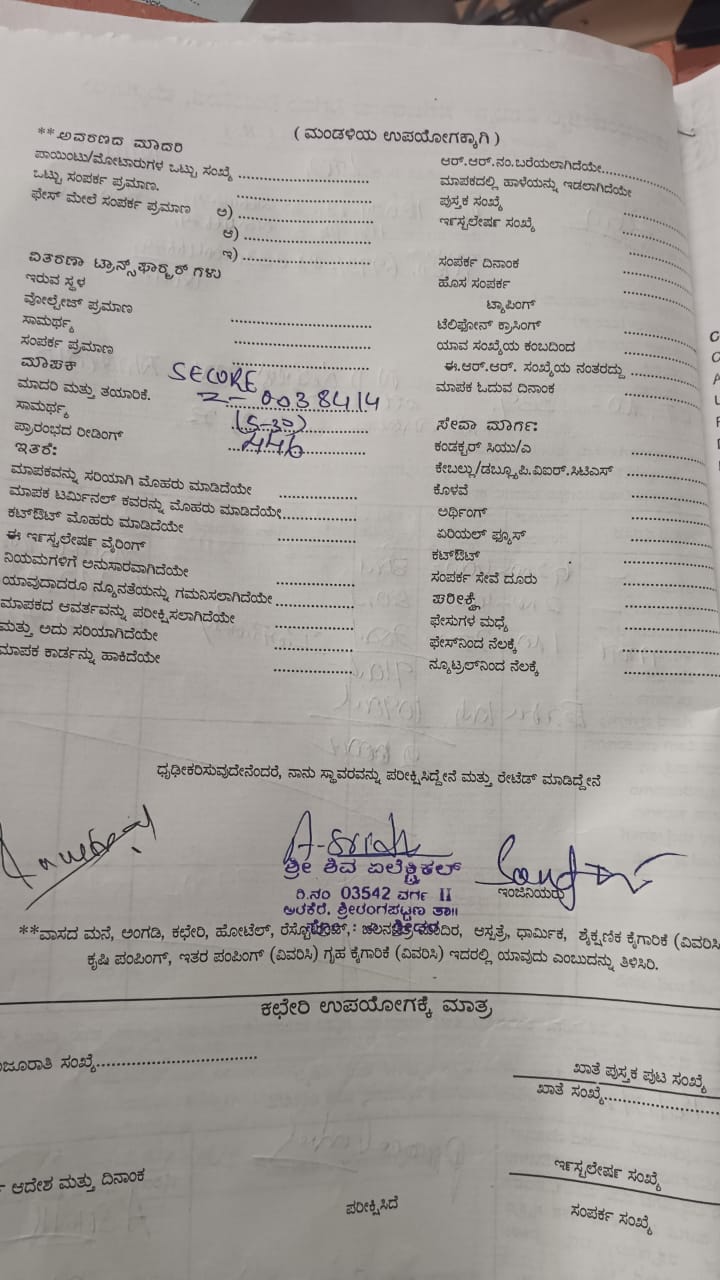 ( ಮಂಡಳಿಯ ಉಪಯೋಗಕ್ಕಾಗಿ )
**ಅವರಣದ ಮಾದರಿ
ಪಾಯಿಂಟು/ಮೋಟಾರುಗಳ ಒಟ್ಟು ಸಂಖ್ಯೆ ..............................
ಒಟ್ಟು ಸಂಪರ್ಕ ಪ್ರಮಾಣ. ..............................
ಫೇಸ್ ಮೇಲೆ ಸಂಪರ್ಕ ಪ್ರಮಾಣ ಅ) ..............................
ಆ) ..............................
ಇ) ..............................
ವಿತರಣಾ ಟ್ರಾನ್ಸ್‌ಫಾರ್ಮರ್ ಗಳು
ಇರುವ ಸ್ಥಳ
ವೋಲ್ಟೇಜ್ ಪ್ರಮಾಣ ..............................
ಸಾಮರ್ಥ್ಯ ..............................
ಸಂಪರ್ಕ ಪ್ರಮಾಣ ..............................
ಮಾಪಕ SECURE
ಮಾದರಿ ಮತ್ತು ತಯಾರಿಕೆ. 2-0038414
ಸಾಮರ್ಥ್ಯ (5-30)
ಪ್ರಾರಂಭದ ರೀಡಿಂಗ್ 446
ಇತರೆ:
ಮಾಪಕವನ್ನು ಸರಿಯಾಗಿ ಮೊಹರು ಮಾಡಿದೆಯೇ ..................
ಮಾಪಕ ಟರ್ಮಿನಲ್ ಕವರನ್ನು ಮೊಹರು ಮಾಡಿದೆಯೇ..................
ಕಟ್‌ಔಟ್ ಮೊಹರು ಮಾಡಿದೆಯೇ ..................
ಈ ಇನ್ಸ್ಟಲೇಷನ್ ವೈರಿಂಗ್
ನಿಯಮಗಳಿಗೆ ಅನುಸಾರವಾಗಿದೆಯೇ ..................
ಯಾವುದಾದರೂ ನ್ಯೂನತೆಯನ್ನು ಗಮನಿಸಲಾಗಿದೆಯೇ ..................
ಮಾಪಕದ ಆವರ್ತವನ್ನು ಪರೀಕ್ಷಿಸಲಾಗಿದೆಯೇ ..................
ಮತ್ತು ಅದು ಸರಿಯಾಗಿದೆಯೇ ..................
ಮಾಪಕ ಕಾರ್ಡನ್ನು ಹಾಕಿದೆಯೇ ..................
ಆರ್.ಆರ್.ನಂ.ಬರೆಯಲಾಗಿದೆಯೇ..................
ಮಾಪಕದಲ್ಲಿ ಹಾಳೆಯನ್ನು ಇಡಲಾಗಿದೆಯೇ
ಪುಸ್ತಕ ಸಂಖ್ಯೆ ..................
ಇನ್ಸ್ಟಲೇಷನ್ ಸಂಖ್ಯೆ ..................
ಸಂಪರ್ಕ ದಿನಾಂಕ ..................
ಹೊಸ ಸಂಪರ್ಕ ..................
ಟ್ಯಾಪಿಂಗ್
ಟೆಲಿಫೋನ್ ಕ್ರಾಸಿಂಗ್ ..................
ಯಾವ ಸಂಖ್ಯೆಯ ಕಂಬದಿಂದ ..................
ಈ.ಆರ್.ಆರ್. ಸಂಖ್ಯೆಯ ನಂತರದ್ದು ..................
ಮಾಪಕ ಓದುವ ದಿನಾಂಕ ..................
ಸೇವಾ ಮಾರ್ಗ:
ಕಂಡಕ್ಟರ್ ಸಿಯು/ಎ ..................
ಕೇಬಲ್ಲು/ಡಬ್ಲ್ಯೂ.ಪಿ.ವಿಐರ್.ಸಿಟಿಎಸ್ ..................
ಕೊಳವೆ ..................
ಅರ್ಥಿಂಗ್ ..................
ಏರಿಯಲ್ ಫ್ಯೂಸ್ ..................
ಕಟ್‌ಔಟ್ ..................
ಸಂಪರ್ಕ ಸೇವೆ ದೂರು ..................
ಪರೀಕ್ಷೆ ..................
ಫೇಸುಗಳ ಮಧ್ಯೆ ..................
ಫೇಸ್‌ನಿಂದ ನೆಲಕ್ಕೆ ..................
ನ್ಯೂಟ್ರಲ್‌ನಿಂದ ನೆಲಕ್ಕೆ ..................
ಧೃಢೀಕರಿಸುವುದೇನೆಂದರೆ, ನಾನು ಸ್ಥಾವರವನ್ನು ಪರೀಕ್ಷಿಸಿದ್ದೇನೆ ಮತ್ತು ರೇಟೆಡ್ ಮಾಡಿದ್ದೇನೆ
ಶ್ರೀ ಶಿವ ಏಲೆಕ್ಟ್ರಿಕಲ್
ರಿ.ನಂ 03542 ವರ್ಗ II
ಅರಕೆರೆ, ಶ್ರೀರಂಗಪಟ್ಟಣ ತಾ॥
ಇಂಜಿನಿಯರು
**ವಾಸದ ಮನೆ, ಅಂಗಡಿ, ಕಛೇರಿ, ಹೋಟೆಲ್, ಮಂದಿರ, ಆಸ್ಪತ್ರೆ, ಧಾರ್ಮಿಕ, ಶೈಕ್ಷಣಿಕ ಕೈಗಾರಿಕೆ (ವಿವರಿಸಿ
ಕೃಷಿ ಪಂಪಿಂಗ್, ಇತರ ಪಂಪಿಂಗ್ (ವಿವರಿಸಿ) ಗೃಹ ಕೈಗಾರಿಕೆ (ವಿವರಿಸಿ) ಇದರಲ್ಲಿ ಯಾವುದು ಎಂಬುದನ್ನು ತಿಳಿಸಿರಿ.
ಕಛೇರಿ ಉಪಯೋಗಕ್ಕೆ ಮಾತ್ರ
ಜೂರಾತಿ ಸಂಖ್ಯೆ..............................
ಖಾತೆ ಪುಸ್ತಕ ಪುಟ ಸಂಖ್ಯೆ
ಖಾತೆ ಸಂಖ್ಯೆ..............................
ಆದೇಶ ಮತ್ತು ದಿನಾಂಕ
ಇನ್ಸ್ಟಲೇಷನ್ ಸಂಖ್ಯೆ
ಪರೀಕ್ಷಿಸಿದೆ
ಸಂಪರ್ಕ ಸಂಖ್ಯೆ